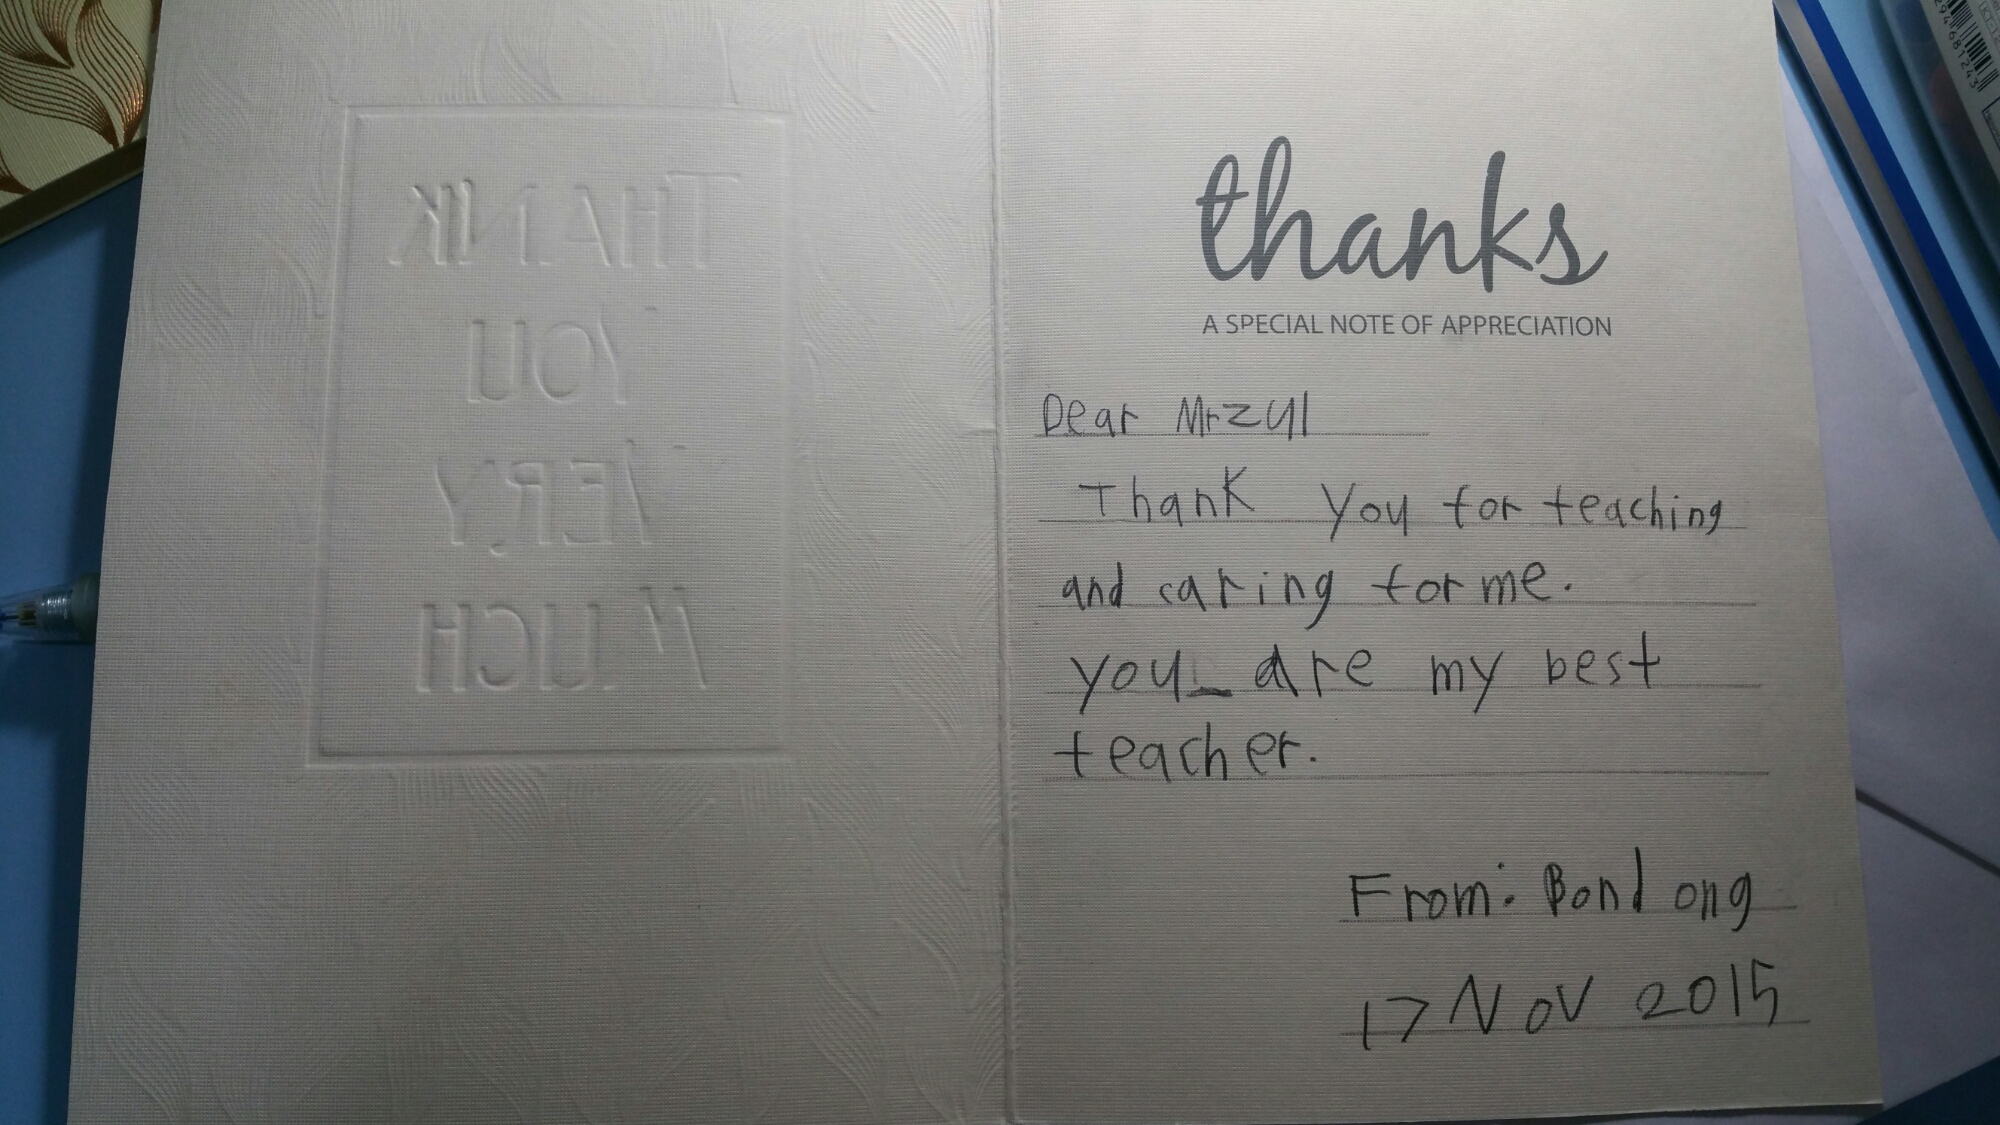 THANK
YOU
VERY
MUCH
thanks
A SPECIAL NOTE OF APPRECIATION
Dear Mr Zul
Thank you for teaching
and caring for me.
you are my best
teacher.
From: Bond ong
17 Nov 2015